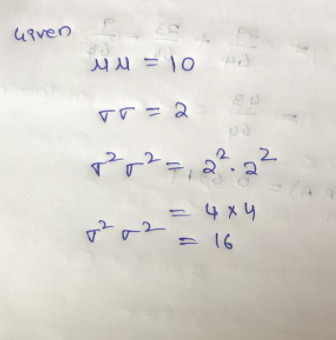 Given
μμ = 10
σσ = 2
σ² σ² = 2² · 2²
= 4 × 4
σ² σ² = 16